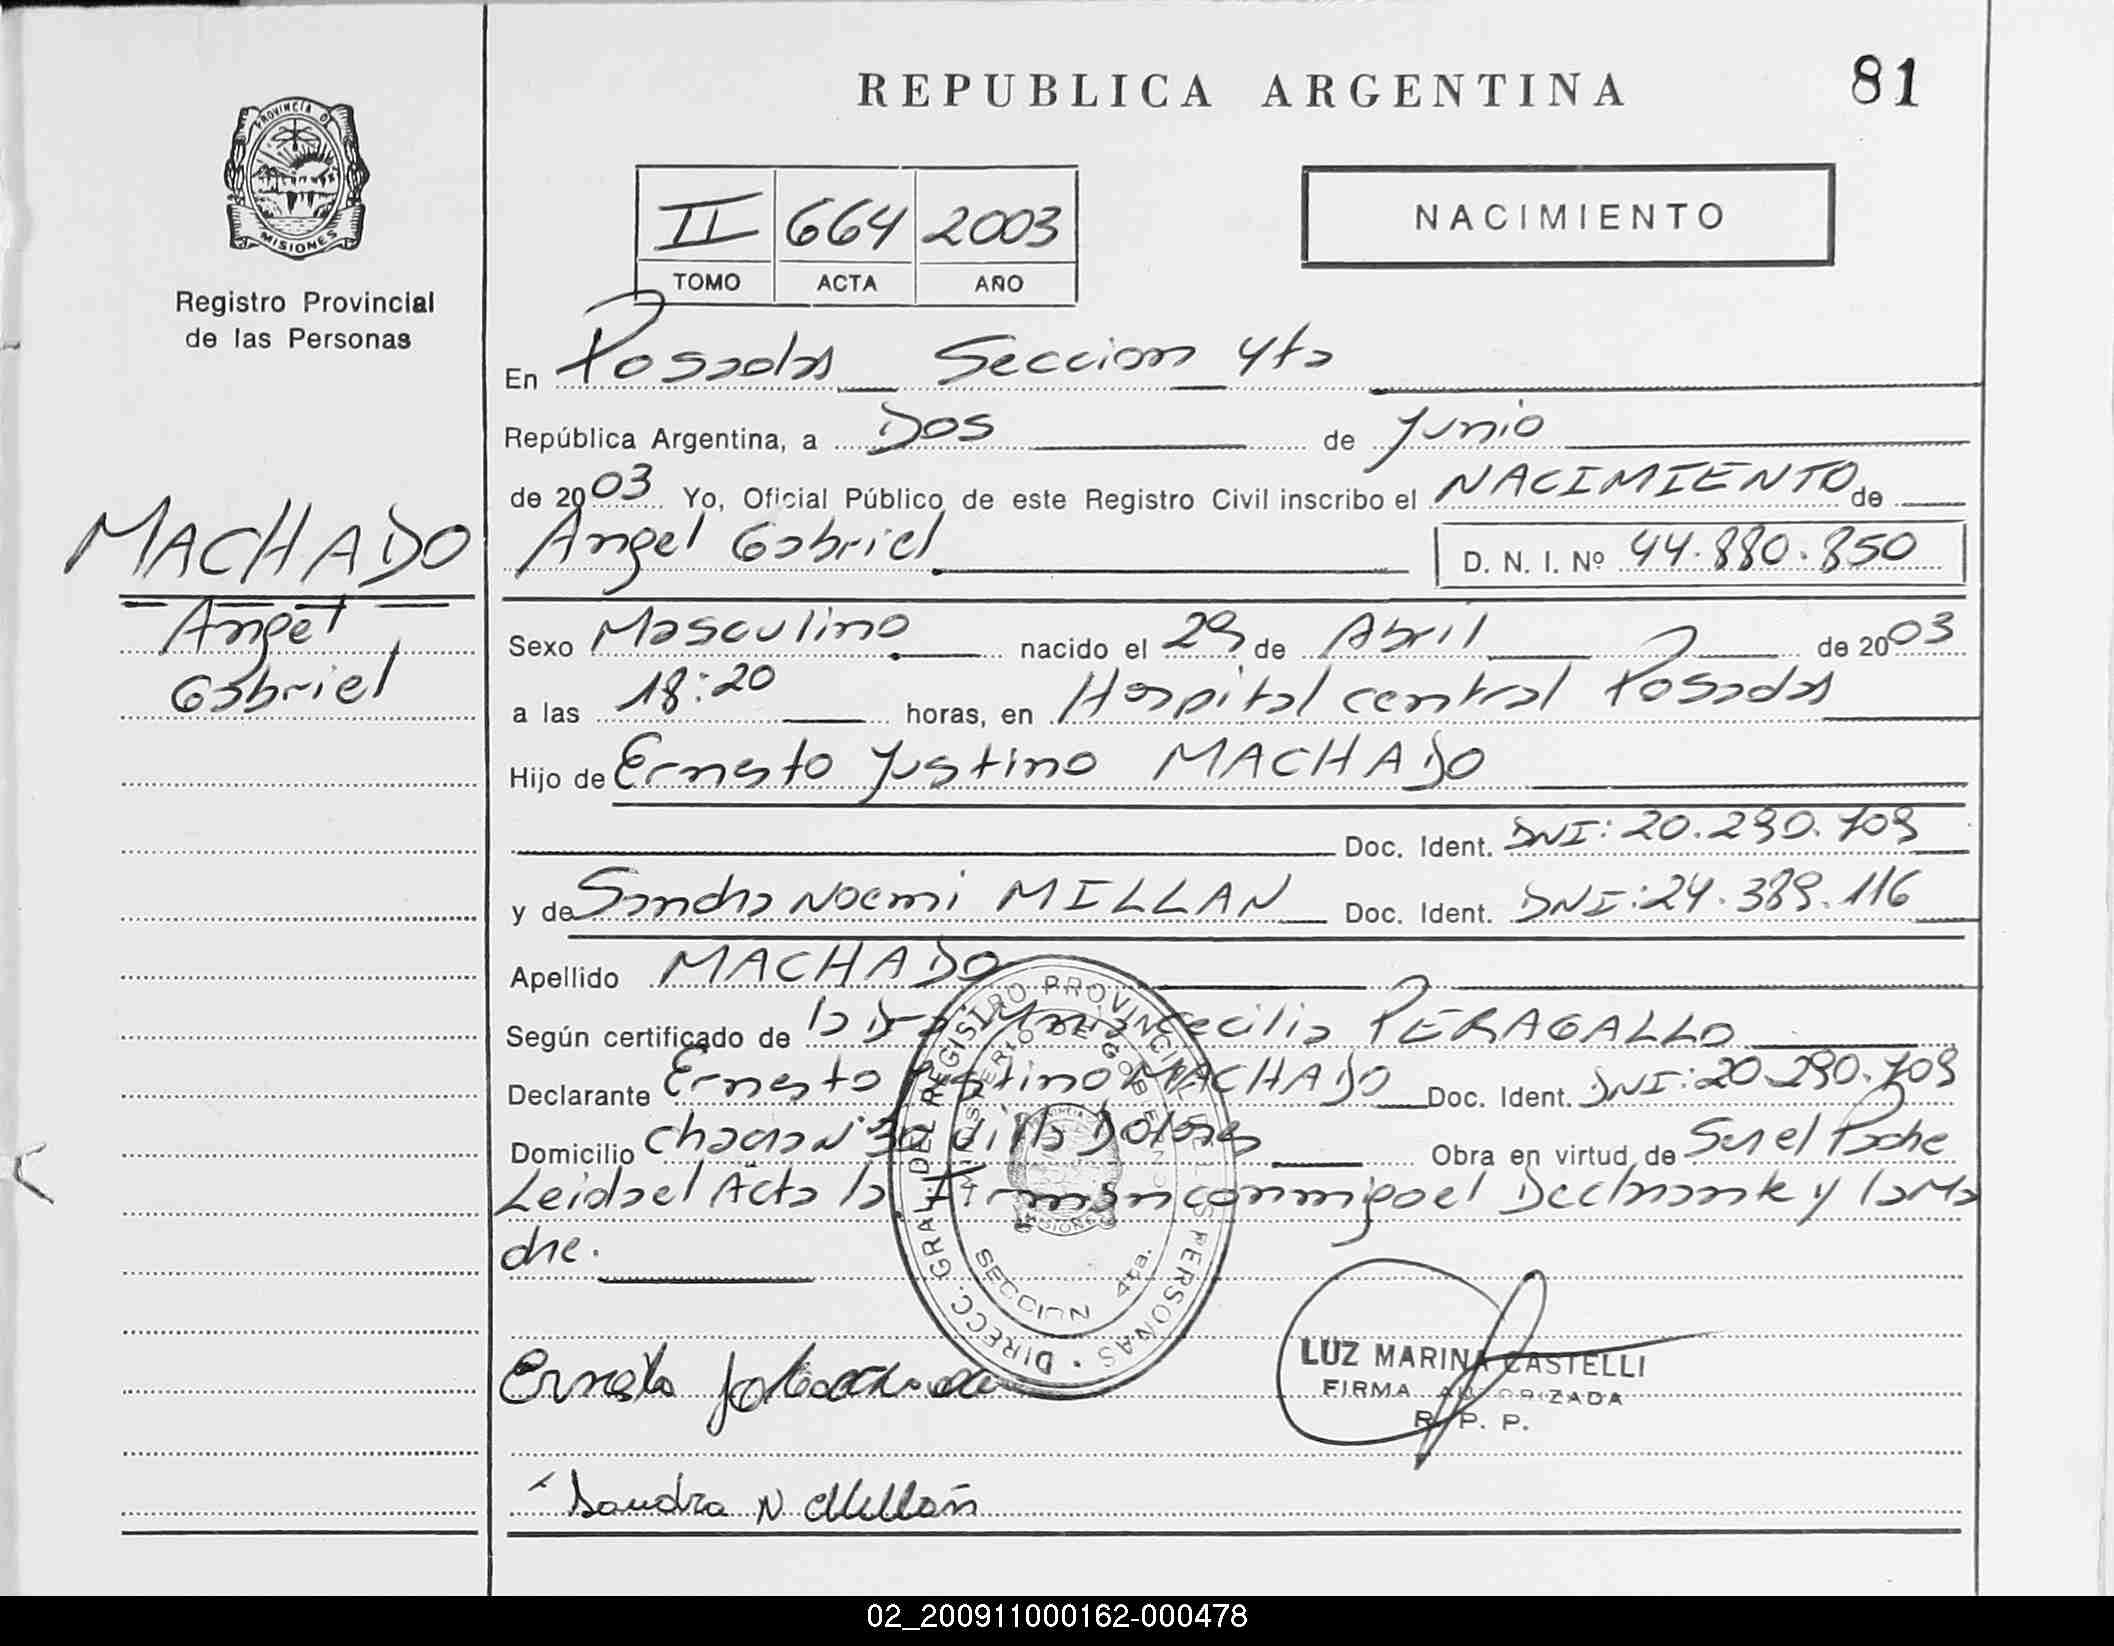 REPUBLICA ARGENTINA
81
PROVINCIA DE
MISIONES
Registro Provincial
de las Personas
II 664 2003
TOMO ACTA AÑO
NACIMIENTO
En Posadas Seccion 4ta
República Argentina, a Dos de Junio
de 2003 Yo, Oficial Público de este Registro Civil inscribo el NACIMIENTO de
Angel Gabriel D. N. I. Nº 44.880.850
MACHADO
Angel
Gabriel
Sexo Masculino nacido el 29 de Abril de 2003
a las 18:20 horas, en Hospital central Posadas
Hijo de Ernesto Justino MACHADO
Doc. Ident. DNI: 20.290.709
y de Sandra Noemi MILLAN Doc. Ident. DNI: 24.389.116
Apellido MACHADO
Según certificado de la Dra Cecilia PERAGALLO
Declarante Ernesto Justino MACHADO Doc. Ident. DNI: 20.290.709
Domicilio Chacra Nº Villa Dolores Obra en virtud de Ser el Padre
Leida el Acta la Firman conmigo el Declarante y la Ma
dre.
DIRECC. GRAL. DEL REGISTRO PROVINCIAL DE LAS PERSONAS
MINISTERIO DE GOBIERNO
SECCION 4ta.
LUZ MARINA CASTELLI
FIRMA AUTORIZADA
R. P. P.
Ernesto
Sandra N Millán
02_200911000162-000478